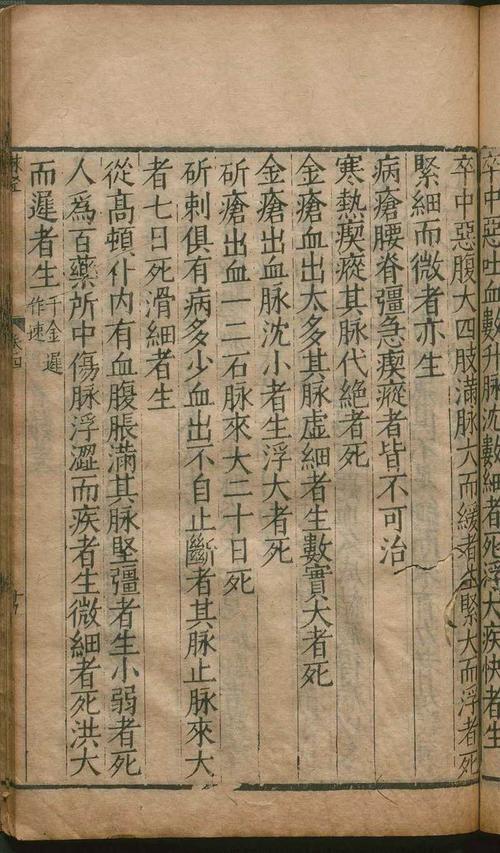 卒中惡吐血數升脉沉數細者死浮大疾快者生
卒中惡腹大四肢滿脉大而緩者生緊大而浮者死
緊細而微者亦生
病瘡腰脊彊急瘈瘲者皆不可治
寒熱瘈瘲其脉代絶者死
金瘡血出太多其脉虚細者生數實大者死
金瘡出血脉沈小者生浮大者死
斫瘡出血一二石脉來大二十日死
斫刺俱有病多少血出不自止斷者其脉止脉來大
者七日死滑細者生
從髙頓仆内有血腹脹滿其脉堅彊者生小弱者死
人爲百藥所中傷脉浮澀而疾者生微細者死洪大
而遲者生千金遲作速
卷四